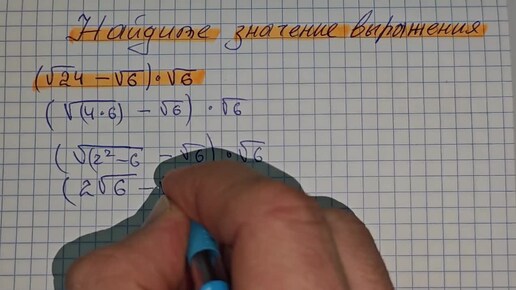 Найдите значение выражения
(√24 − √6) · √6
(√(4·6) − √6) · √6
(√(2²-6 − √6) · √6
(2√6 −